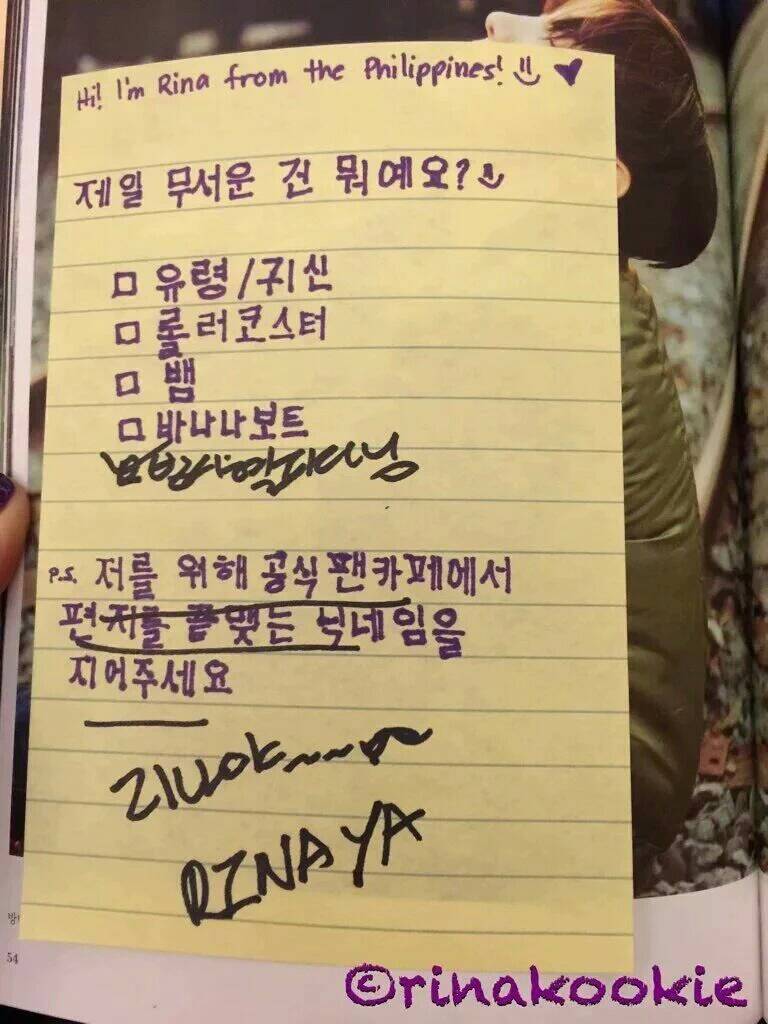 Hi! I'm Rina from the Philippines!
제일 무서운 건 뭐예요?
유령/귀신
롤러코스터
뱀
바나나보트
P.S. 저를 위해 공식 팬카페에서
편지를 끝맺는 닉네임을
지어주세요
리나야~~~
RINAYA
54
©rinakookie